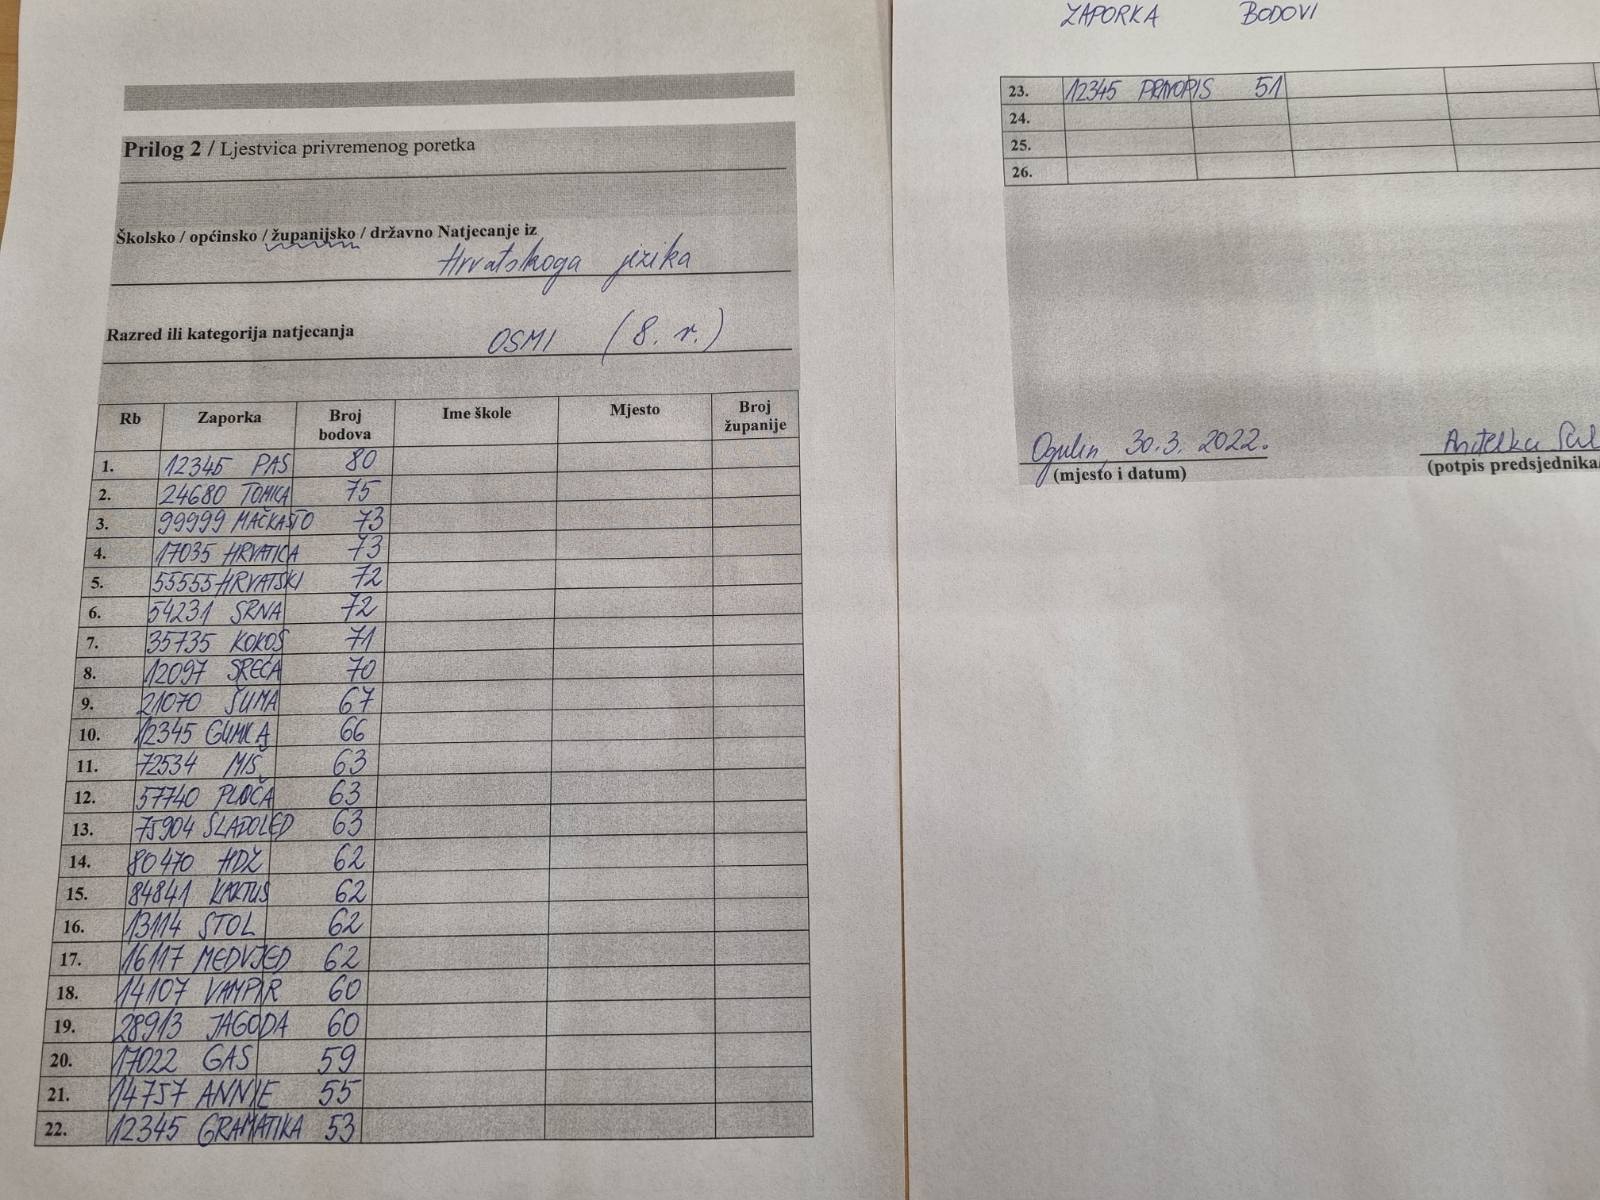 Prilog 2 / Ljestvica privremenog poretka
Školsko / općinsko / županijsko / državno Natjecanje iz
Hrvatskoga jezika
Razred ili kategorija natjecanja OSMI (8. r.)
Rb Zaporka Broj bodova Ime škole Mjesto Broj županije
1. 12345 PAS 80
2. 24680 TOMICA 75
3. 99999 MAČKASTO 73
4. 17035 HRVATICA 73
5. 55555 HRVATSKI 72
6. 54231 SRNA 72
7. 35735 KOKOŠ 71
8. 12097 SREĆA 70
9. 21070 ŠUMA 67
10. 12345 GUMICA 66
11. 72534 MIŠ 63
12. 57740 PLOČA 63
13. 75904 SLADOLED 63
14. 80470 HDZ 62
15. 84841 KAKTUS 62
16. 13114 STOL 62
17. 16117 MEDVJED 62
18. 14107 VAMPIR 60
19. 28913 JAGODA 60
20. 17022 GAS 59
21. 14757 ANNIE 55
22. 12345 GRAMATIKA 53
ZAPORKA BODOVI
23. 12345 PRAVOPIS 51
24.
25.
26.
Ogulin, 30.3. 2022.
(mjesto i datum)
(potpis predsjednika/